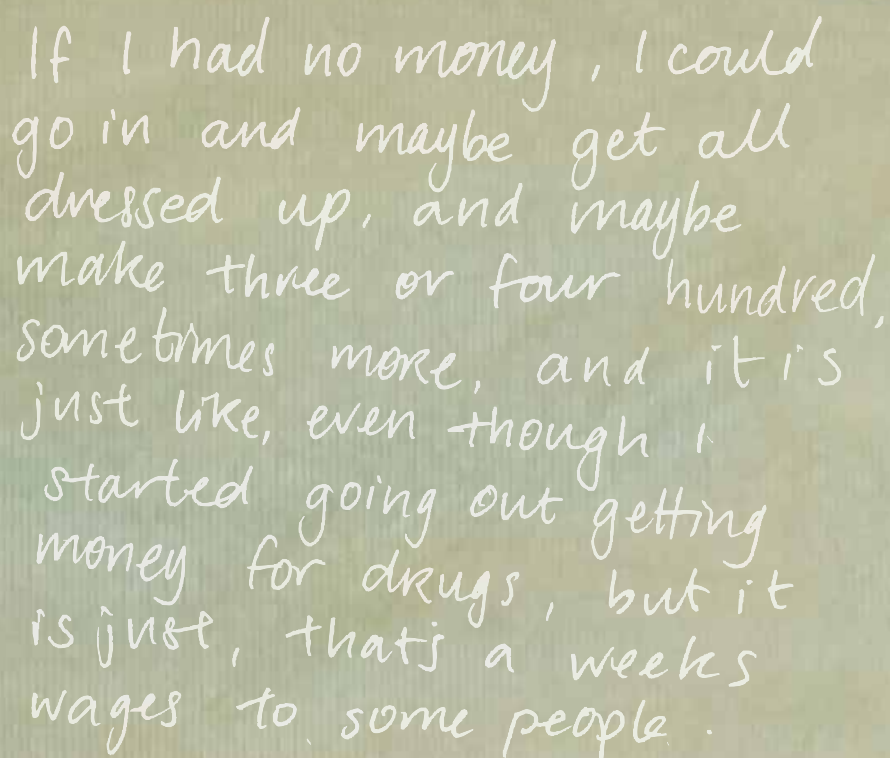 If I had no money, I could
go in and maybe get all
dressed up, and maybe
make three or four hundred,
sometimes more, and it is
just like, even though I
started going out getting
money for drugs, but it
is just, that's a weeks
wages to some people.